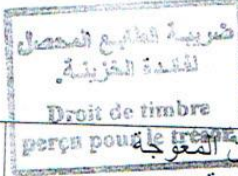 ضريبة الطابع المحصل
لفائدة الخزينة
Droit de timbre
perçu pour le trésor
المعوجة